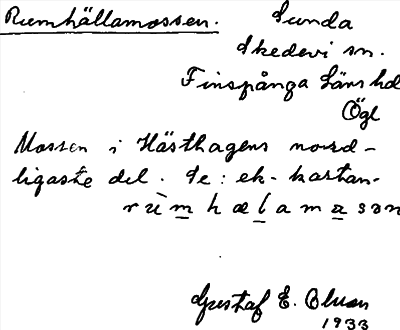 Rumhällamossen. Lunda
Skedevi sn.
Finspånga läns hd
Ögl
Mossen i Hästhagens nord-
ligaste del. Se: ek-kartan.
rùmhælamasən
Gustaf E.
1933